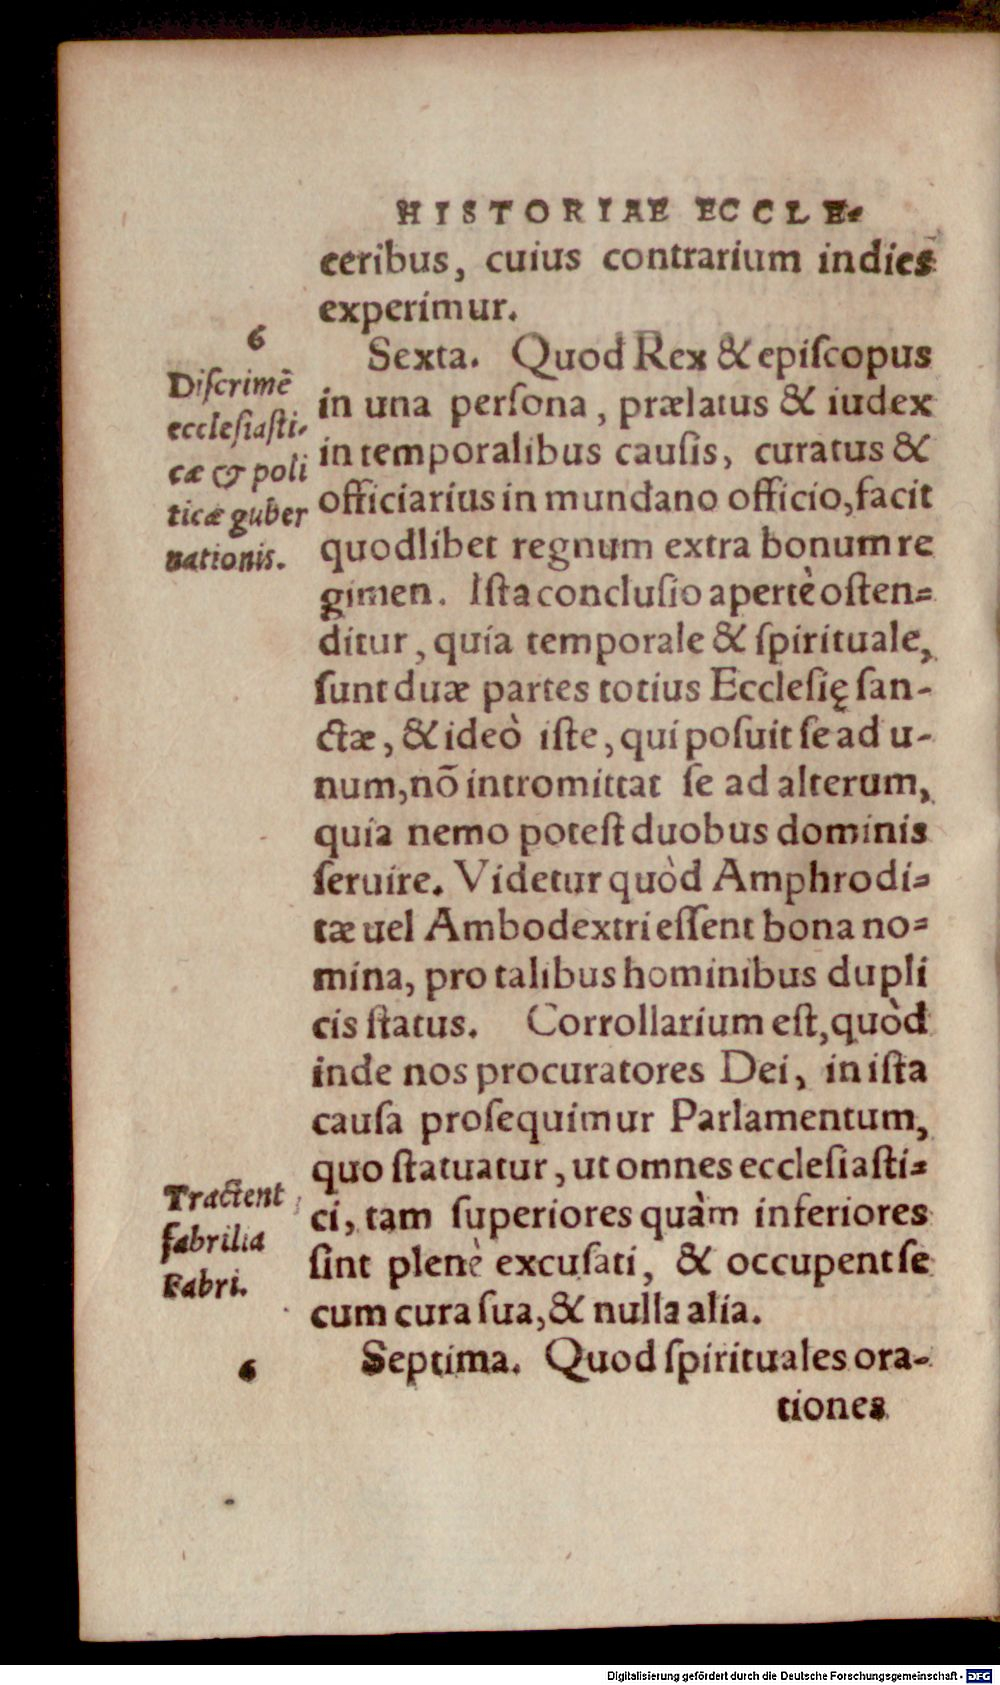 HISTORIAE ECCLE-
ceribus, cuius contrarium indies
experimur.
6
Diſcrimẽ
eccleſiaſti-
cæ & poli
ticæ guber
nationis.
Sexta. Quod Rex & epiſcopus
in una perſona, prælatus & iudex
in temporalibus cauſis, curatus &
officiarius in mundano officio, facit
quodlibet regnum extra bonum re
gimen. Iſta conclusio apertè oſten-
ditur, quia temporale & ſpirituale,
ſunt duæ partes totius Eccleſię ſan-
ctæ, & ideò iſte, qui poſuit ſe ad u-
num, nõ intromittat ſe ad alterum,
quia nemo poteſt duobus dominis
ſeruire. Videtur quòd Amphrodi-
tæ uel Ambodextri eſſent bona no-
mina, pro talibus hominibus dupli
cis ſtatus. Corrollarium eſt, quòd
inde nos procuratores Dei, in iſta
cauſa proſequimur Parlamentum,
quo ſtatuatur, ut omnes eccleſiaſti-
ci, tam ſuperiores quàm inferiores
ſint plenè excuſati, & occupent ſe
cum cura ſua, & nulla alia.
Tractent
fabrilia
Fabri.
6
Septima. Quod ſpirituales ora-
tiones
Digitalisierung gefördert durch die Deutsche Forschungsgemeinschaft - DFG